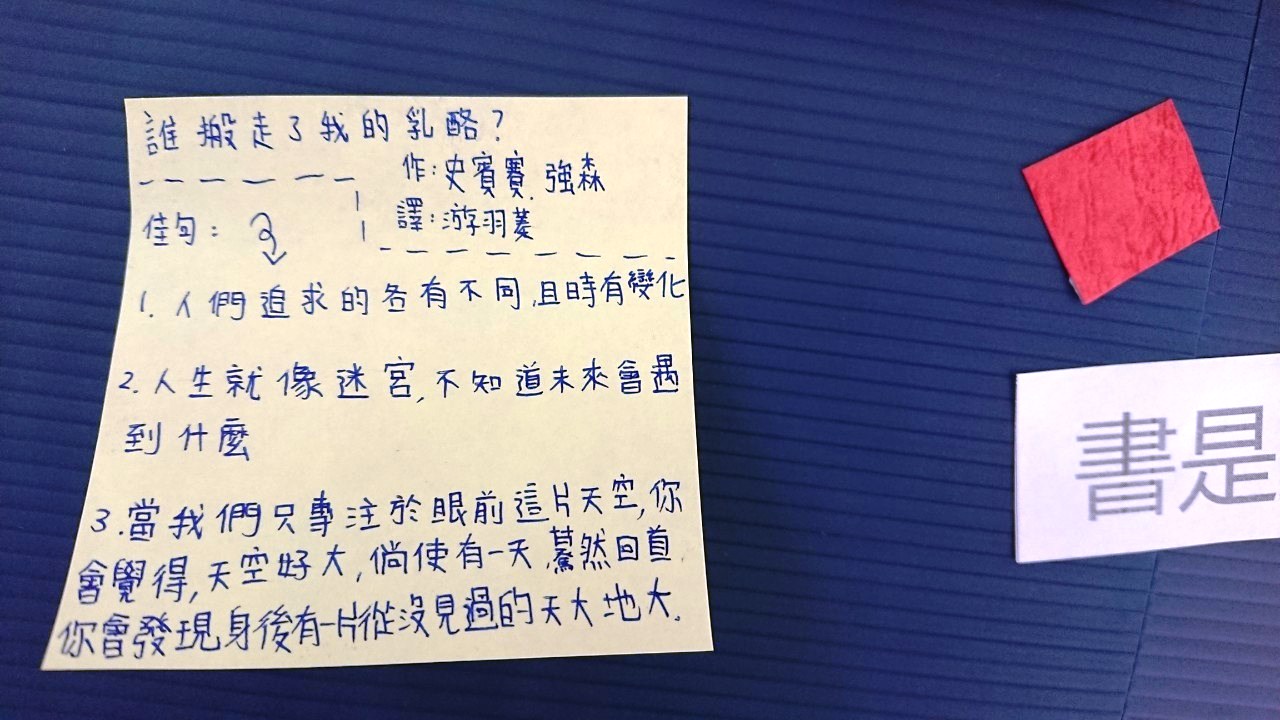 誰搬走了我的乳酪?
作:史賓賽.強森
譯:游羽蓁
佳句:
1.人們追求的各有不同,且時有變化
2.人生就像迷宮,不知道未來會遇
到什麼
3.當我們只專注於眼前這片天空,你
會覺得,天空好大,倘使有一天,驀然回首,
你會發現身後有一片從沒見過的天大地大.
書是